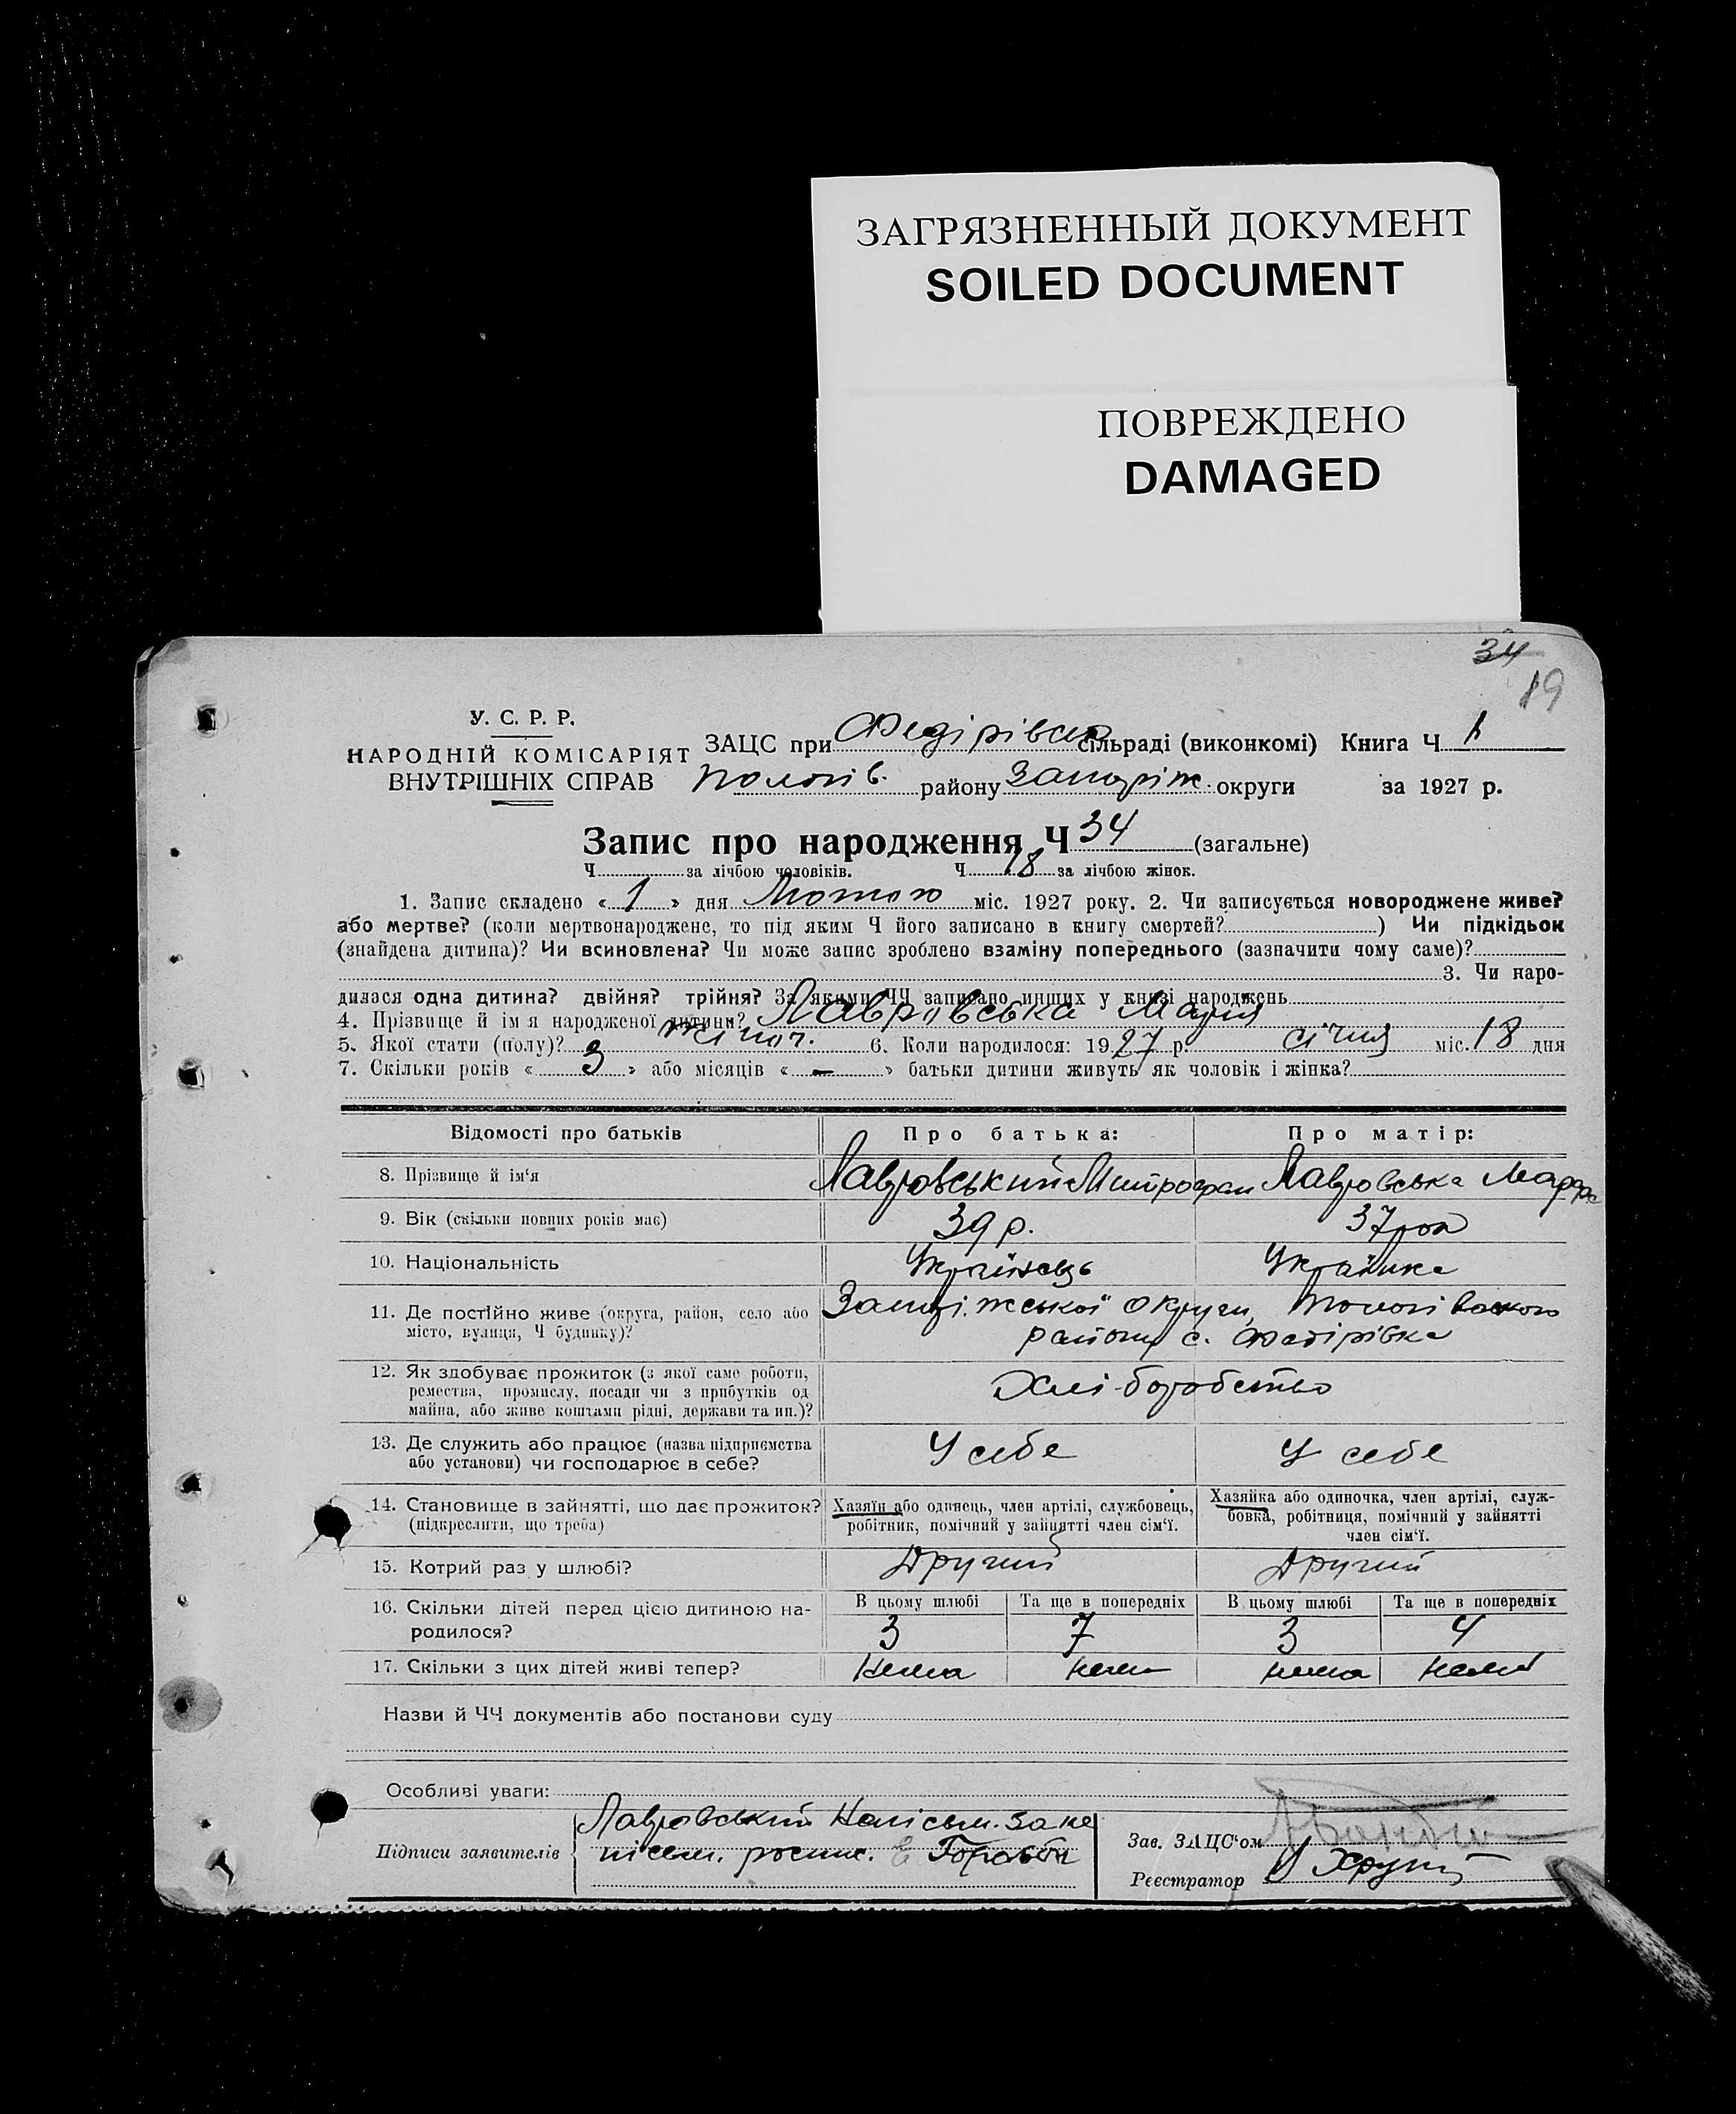 ЗАГРЯЗНЕННЫЙ ДОКУМЕНТ
SOILED DOCUMENT
ПОВРЕЖДЕНО
DAMAGED
34
19
У. С. Р. Р.
НАРОДНІЙ КОМІСАРІЯТ
ВНУТРІШНІХ СПРАВ
ЗАЦС при Федірівск сільраді (виконкомі) Книга Ч 1
Пологів. району Запоріж. округи за 1927 р.
Запис про народження Ч 34 (загальне)
Ч за лічбою чоловіків. Ч 18 за лічбою жінок.
1. Запис складено « 1 » дня Лютого міс. 1927 року. 2. Чи записується новороджене живе?
або мертве? (коли мертвонароджене, то під яким Ч його записано в книгу смертей? ) Чи підкідьок
(знайдена дитина)? Чи всиновлена? Чи може запис зроблено взаміну попереднього (зазначити чому саме)?
3. Чи наро-
дилася одна дитина? двійня? трійня? За якими ЧЧ записано инших у книзі народжень
4. Прізвище й ім я народженої дитини? Лавровська Мария
5. Якої стати (полу)? жіноч. 6. Коли народилося: 1927 р. січня міс. 18 дня
7. Скільки років « 3 » або місяців « – » батьки дитини живуть як чоловік і жінка?
Відомості про батьків Про батька: Про матір:
8. Прізвище й ім'я Лавровський Митрофан Лавровська Марфа
9. Вік (скільки повних років має) 39 р. 37 рок
10. Національність Українець Українка
11. Де постійно живе (округа, район, село або Запоріжської округи, Пологівського
місто, вулиця, Ч будинку)? району с. Федірівка
12. Як здобуває прожиток (з якої саме роботи,
ремества, промислу, посади чи з прибутків од Хліборобство
майна, або живе коштами рідні, держави та ин.)?
13. Де служить або працює (назва підприємства У себе У себе
або установи) чи господарює в себе?
14. Становище в зайнятті, що дає прожиток? Хазяїн або одинець, член артілі, службовець, Хазяйка або одиночка, член артілі, служ-
(підкреслити, що треба) робітник, помічний у зайнятті член сім'ї. бовка, робітниця, помічний у зайнятті
член сім'ї.
15. Котрий раз у шлюбі? Другий Другий
16. Скільки дітей перед цією дитиною на- В цьому шлюбі Та ще в попередніх В цьому шлюбі Та ще в попередніх
родилося? 3 7 3 4
17. Скільки з цих дітей живі тепер? нема нема нема нема
Назви й ЧЧ документів або постанови суду
Особливі уваги:
Лавровський Неписьм. за не
Підписи заявителів письм. роспис. Зав. ЗАЦС'ом
Реєстратор